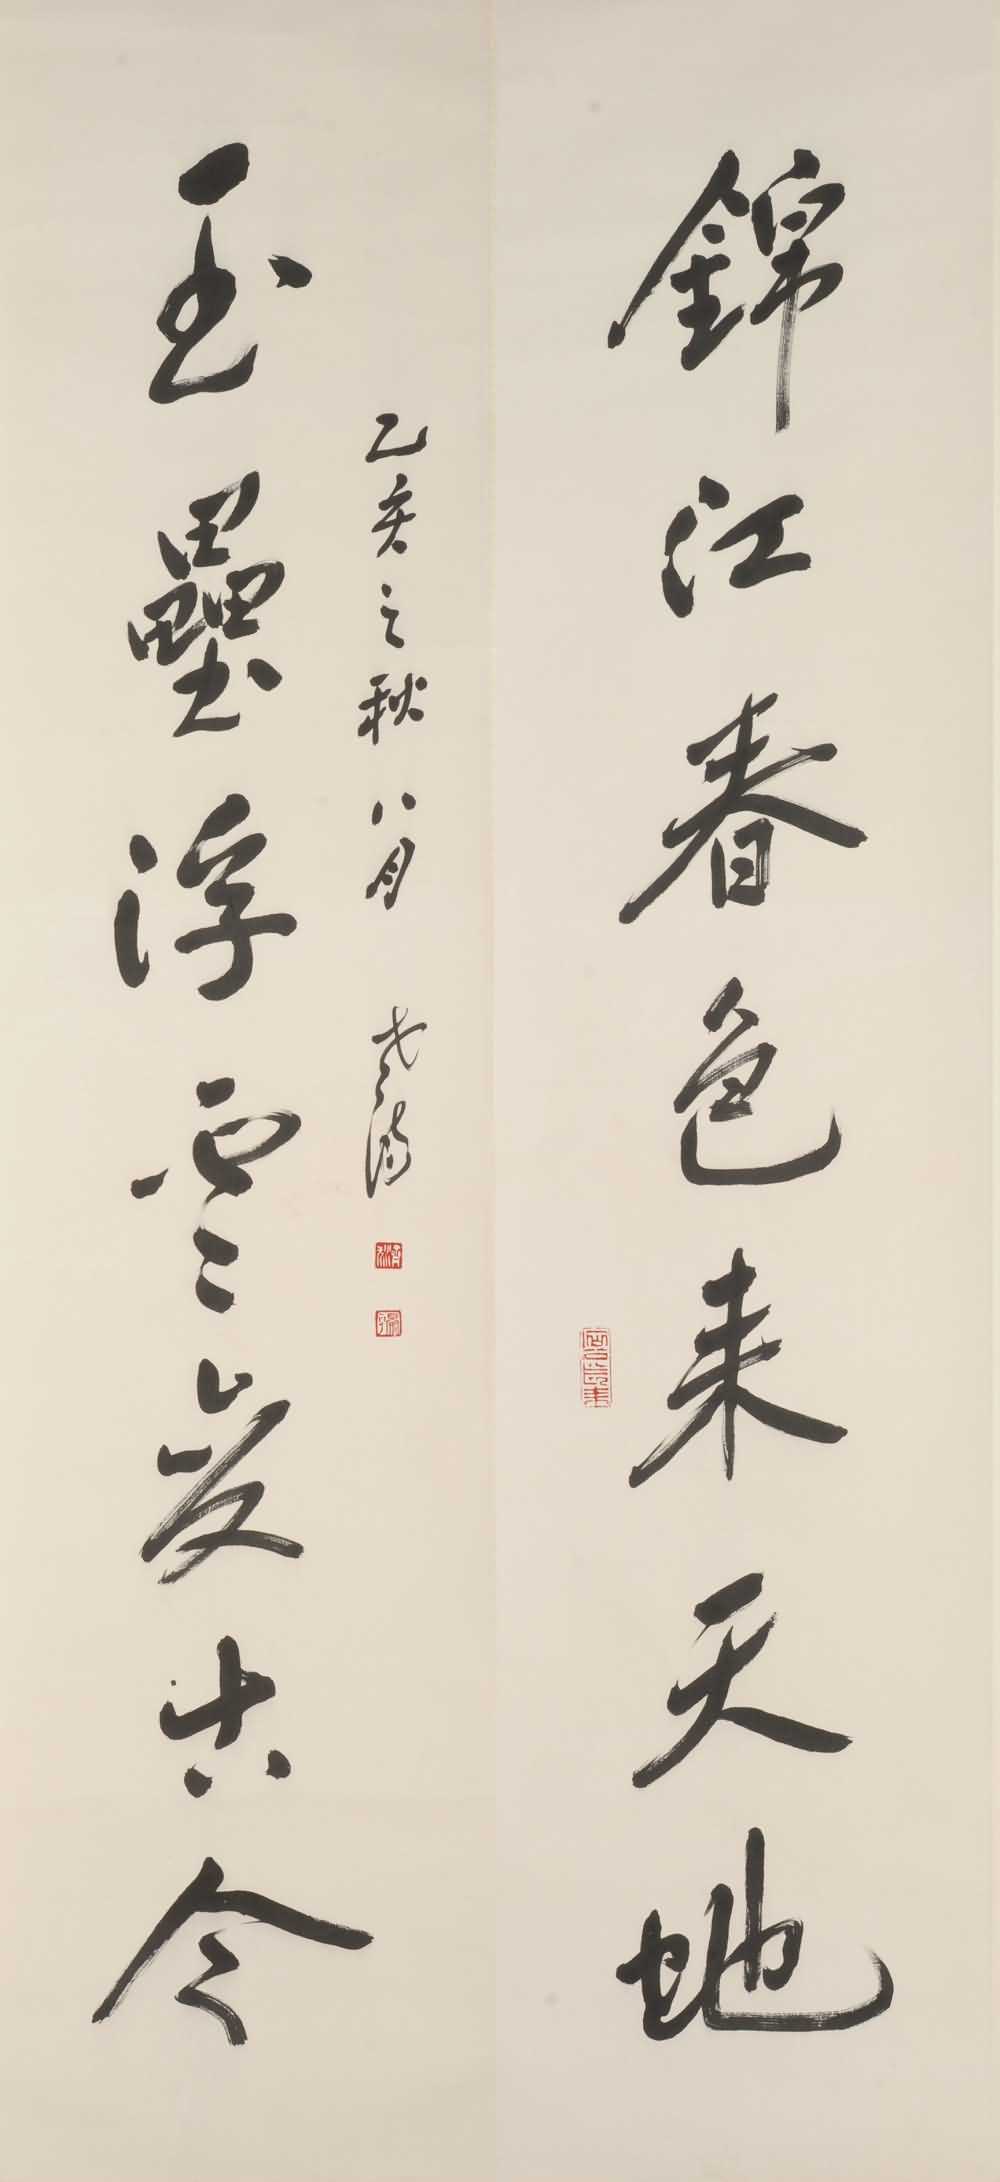 錦江春色来天地
玉壘浮雲變古今
乙亥之秋八月